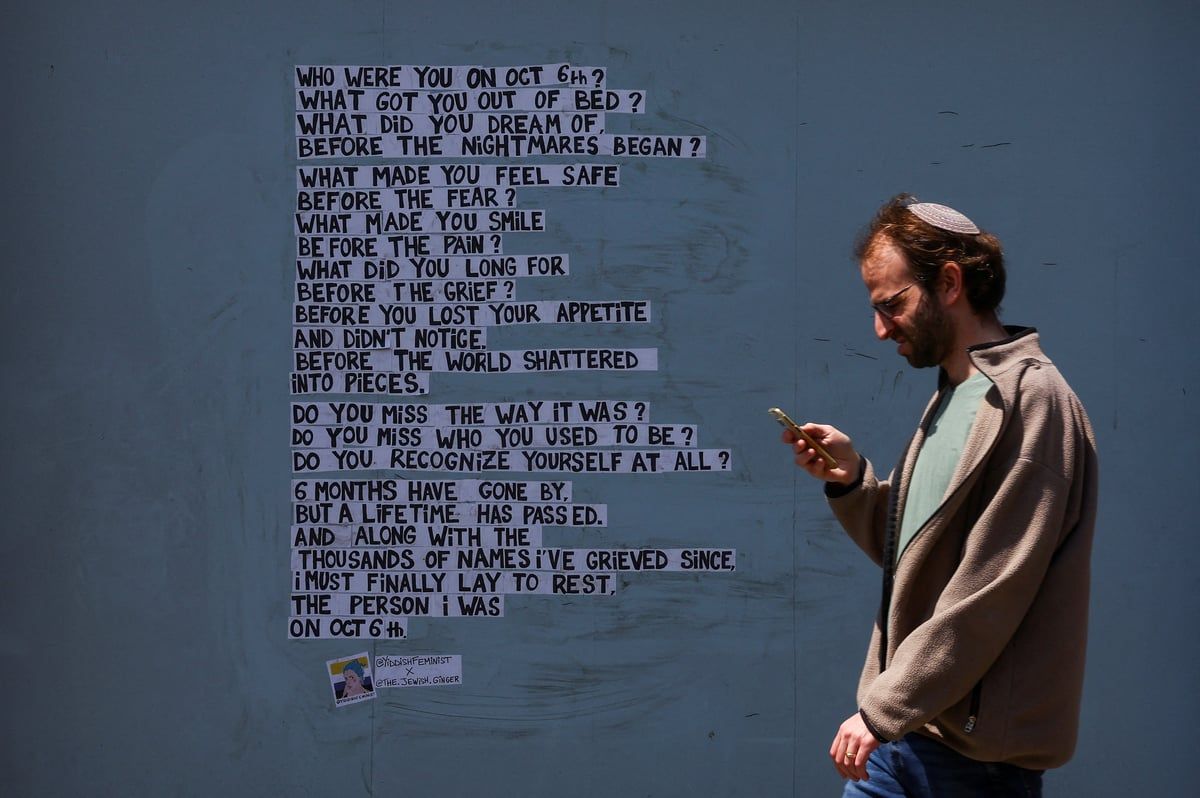 WHO WERE YOU ON OCT 6th?
WHAT GOT YOU OUT OF BED?
WHAT DiD YOU DREAM OF,
BEFORE THE NiGHTMARES BEGAN?
WHAT MADE YOU FEEL SAFE
BEFORE THE FEAR?
WHAT MADE YOU SMiLE
BEFORE THE PAiN?
WHAT DiD YOU LONG FOR
BEFORE THE GRiEF?
BEFORE YOU LOST YOUR APPETiTE
AND DiDN'T NOTiCE.
BEFORE THE WORLD SHATTERED
iNTO PiECES.
DO YOU MiSS THE WAY iT WAS?
DO YOU MiSS WHO YOU USED TO BE?
DO YOU RECOGNiZE YOURSELF AT ALL?
6 MONTHS HAVE GONE BY,
BUT A LiFETiME HAS PASSED.
AND ALONG WiTH THE
THOUSANDS OF NAMES i'VE GRiEVED SiNCE,
i MUST FiNALLY LAY TO REST,
THE PERSON i WAS
ON OCT 6th.
@YiDDiSHFEMiNiST
X
@THE.JEWiSH.GiNGER
@YiDDiSHFEMiNiST